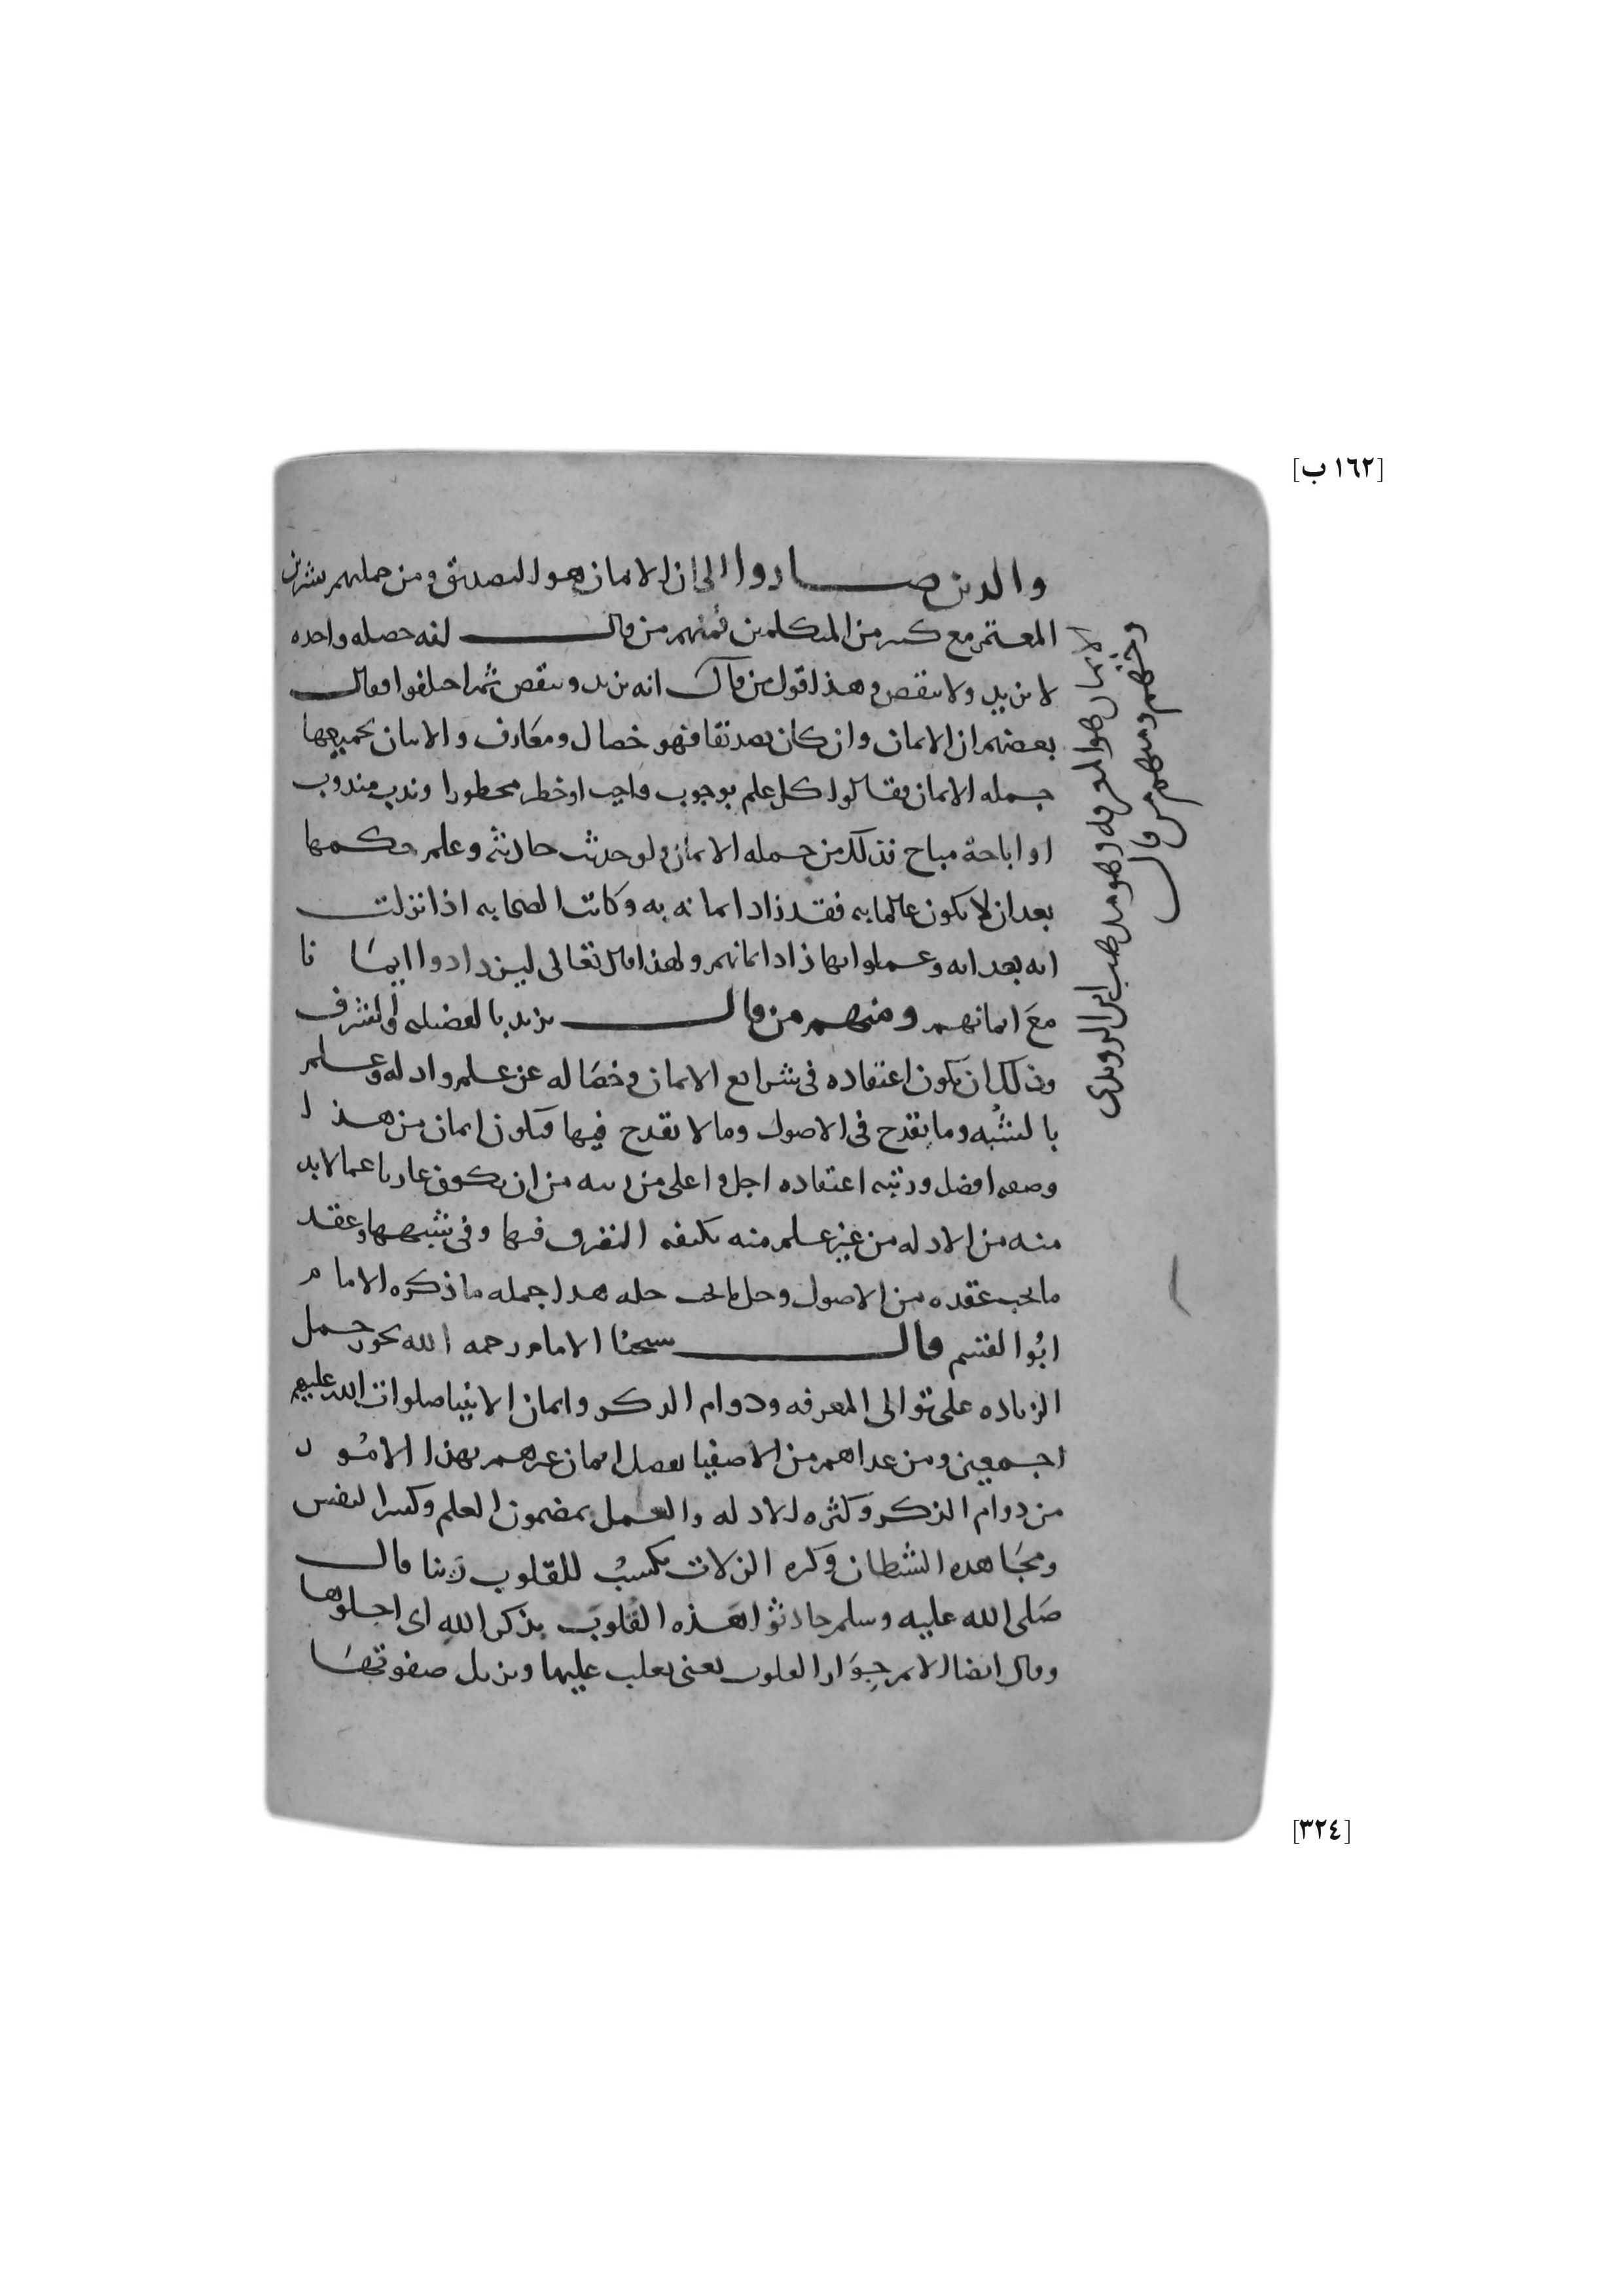 [١٦٢ ب]
والذين صاروا الى ان الايمان هو التصديق ومن جملتهم بشر بن
المعتمر مع كثير من المتكلمين فمنهم من قال خصله واحده
لا يزيد ولا ينقص وهذا قول من قال انه يزيد وينقص ثم اختلفوا فقال
بعضهم ان الايمان وان كان تصديقا فهو خصال ومعارف والاتيان بجميعها
جمله الايمان فقالوا كل علم بوجوب واجب او خطر محظور او ندب مندوب
او اباحة مباح فذلك من جمله الايمان ولو حدثت حادثه وعلم حكمها
بعد ان لا يكون عالما به فقد زاد ايمانه به وكانت الصحابه اذا نزلت
ايه بعد ايه وعملوا بها زاد ايمانهم ولهذا قال تعالى ليزدادوا ايمانا
مع ايمانهم ومنهم من قال يزيد بالفضيله والشرف
وذلك ان يكون اعتقاده في شرايع الايمان وخصاله عن علم وادله وعلم
بالشبه وما يقدح في الاصول وما لا يقدح فيها فيكون ايمان من هذا
وصفه افضل ورتبه اعتقاده اجل واعلى من رتبه من ان يكون عاريا عما لا بد
منه من الادله من غير علم منه بكيفيه التفرق فيها وفي شبهها وعقد
ما يجب عقده من الاصول وحل ما يجب حله هذا جمله ما ذكره الامام
ابو القسم قال شيخنا الامام رحمه الله يجوز حمل
الزياده على توالى المعرفه ودوام الذكر وايمان الانبيا صلوات الله عليهم
اجمعين ومن عداهم من الاصفيا يفضل ايمان غيرهم بهذا الامور
من دوام الذكر وكثره الادله والعمل بمضمون العلم وكسر النفس
ومجاهده الشيطان وكره الزلات يكسب للقلوب رينا قال
صلى الله عليه وسلم حادثوا هذه القلوب بذكر الله اى اجلوها
وقال ايضا الاثم حواز القلوب يعنى يغلب عليها ويزيل صفوتها
الايمان هو المعرفه وهو مذهب ابن الروندى
ومنهم من قال
[٣٢٤]